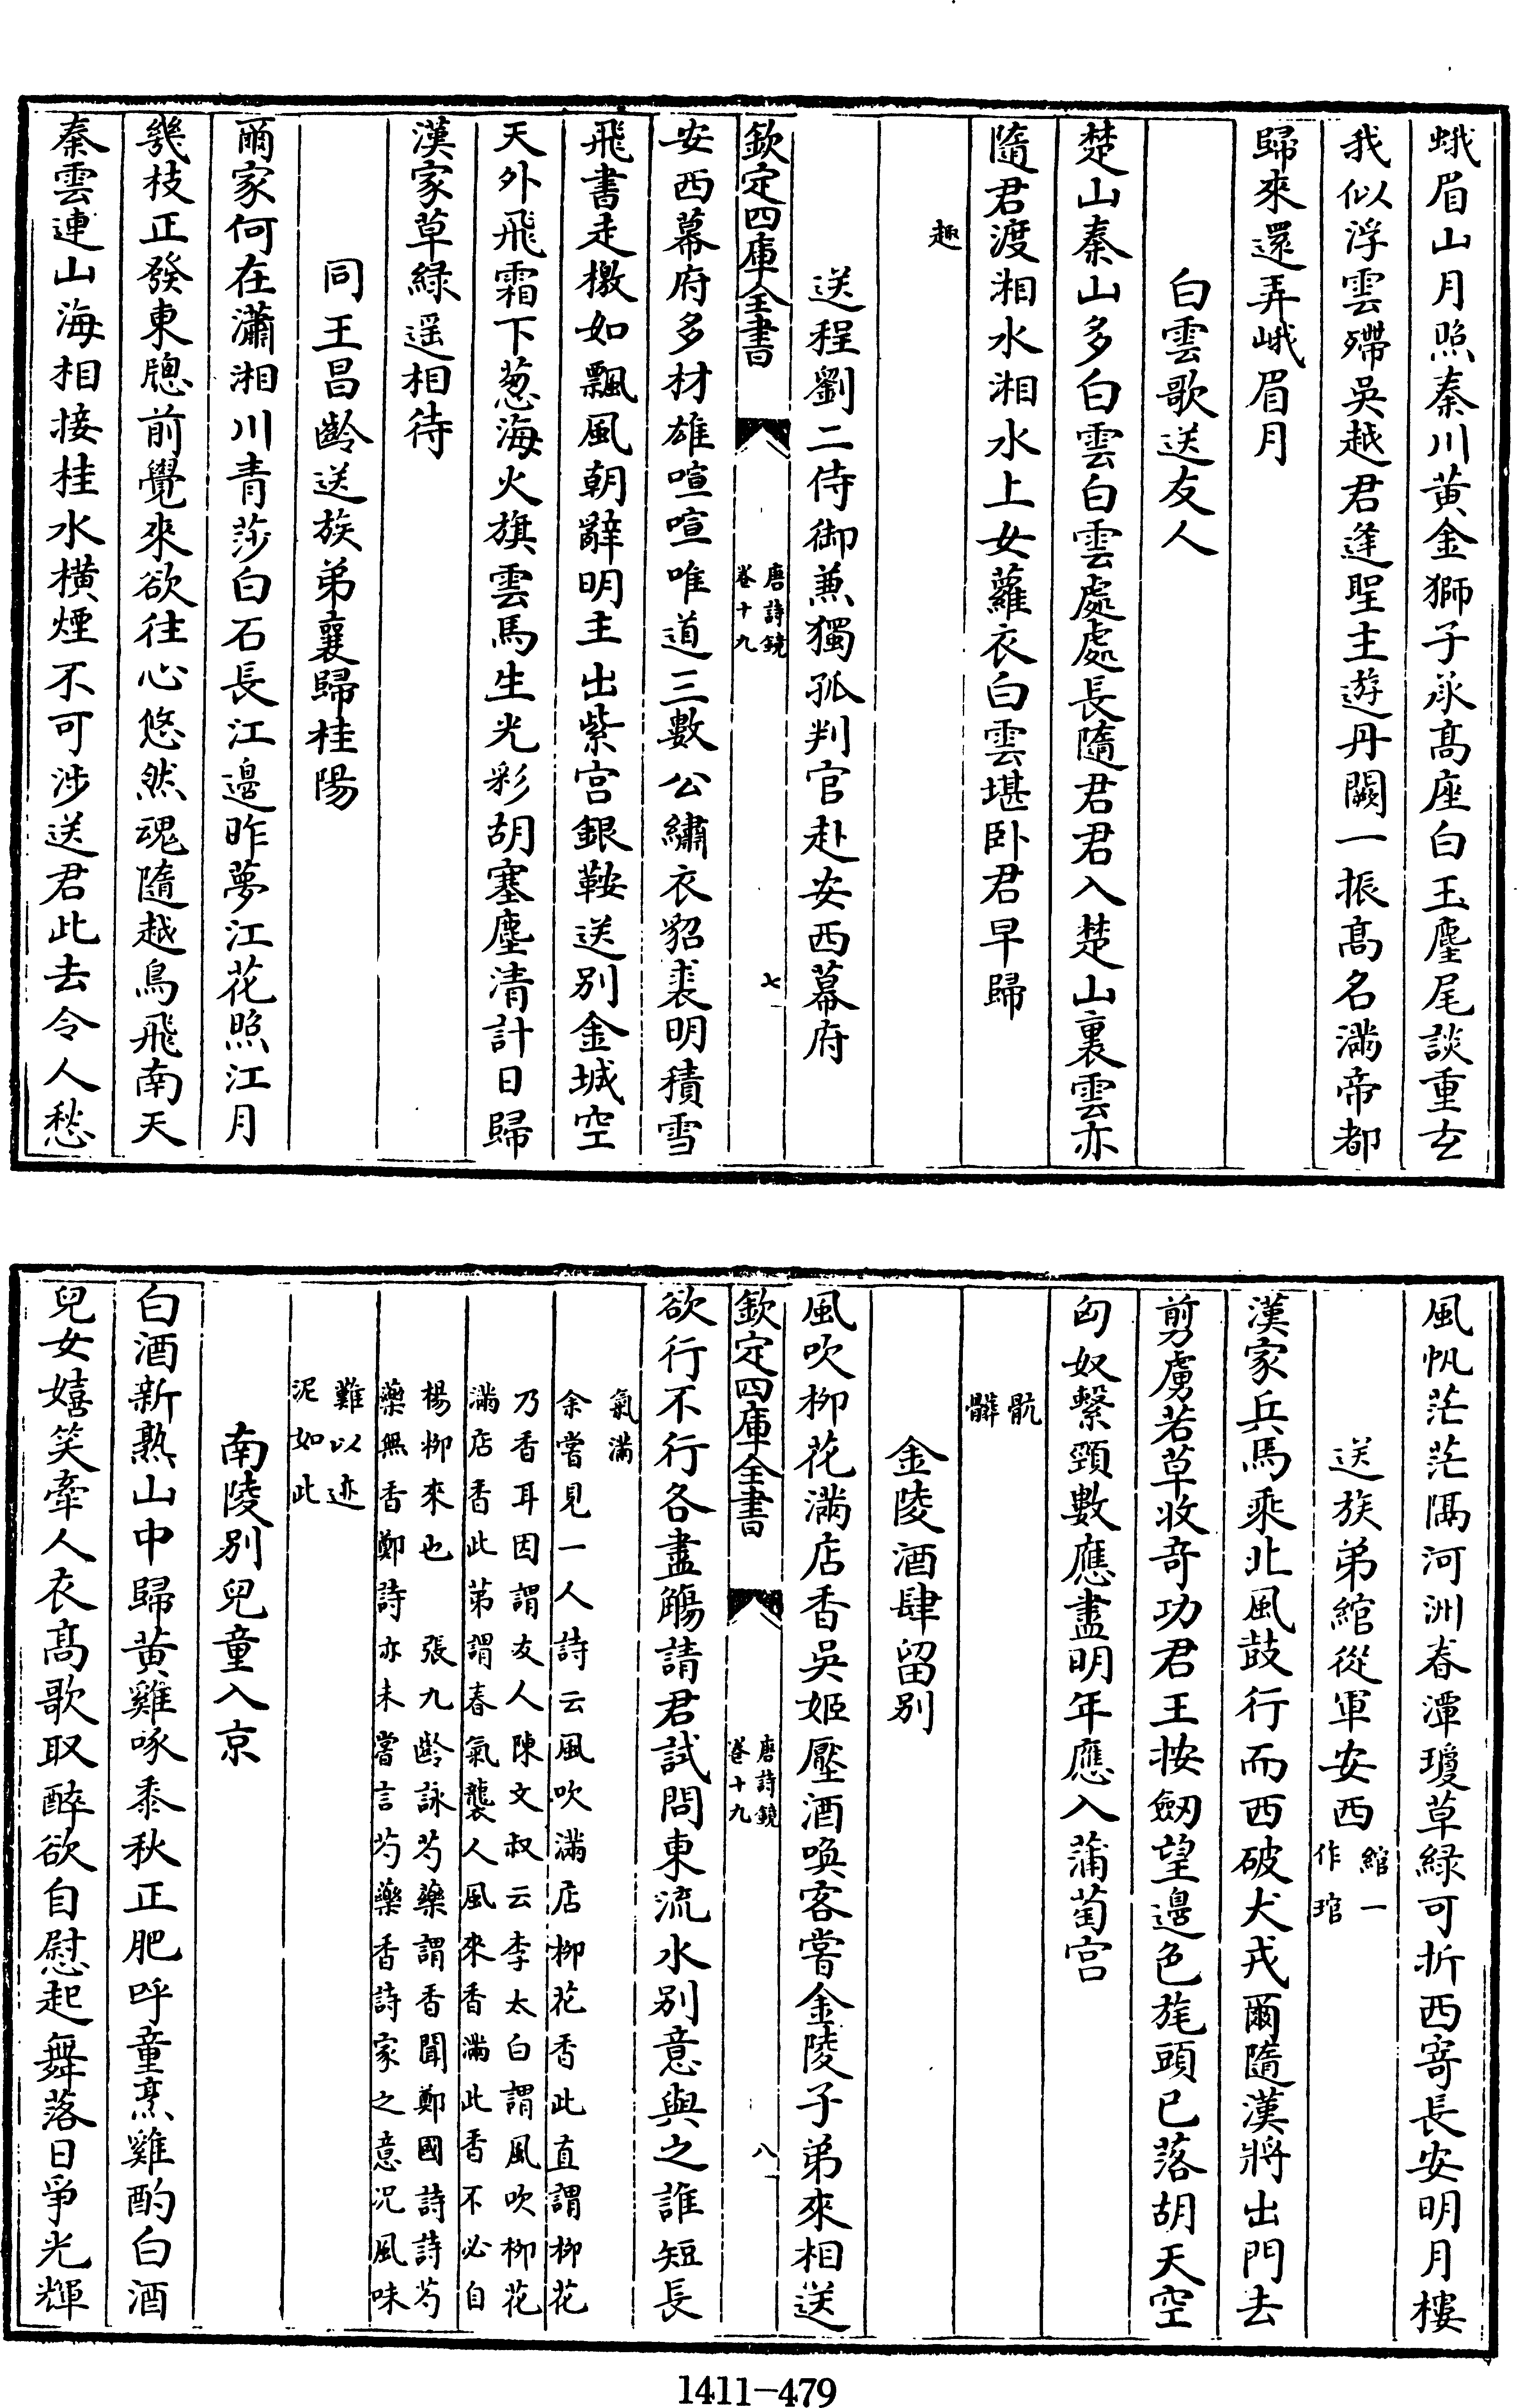 蛾眉山月照秦川黃金獅子承高座白玉麈尾談重玄
我似浮雲殢吳越君逢聖主遊丹闕一振高名滿帝都
歸來還弄峨眉月
白雲歌送友人
楚山秦山多白雲白雲處處長隨君君入楚山裏雲亦
隨君渡湘水湘水上女蘿衣白雲堪卧君早歸
趣
送程劉二侍御兼獨孤判官赴安西幕府
欽定四庫全書
唐詩鏡
卷十九
七
安西幕府多材雄喧喧唯道三數公繡衣貂裘明積雪
飛書走檄如飄風朝辭明主出紫宫銀鞍送别金城空
天外飛霜下葱海火旗雲馬生光彩胡塞塵清計日歸
漢家草緑遥相待
同王昌齡送族弟襄歸桂陽
爾家何在瀟湘川青莎白石長江邉昨夢江花照江月
幾枝正發東牕前覺來欲往心悠然魂隨越鳥飛南天
秦雲連山海相接桂水橫煙不可涉送君此去令人愁
風帆茫茫隔河洲春潭瓊草緑可折西寄長安明月樓
送族弟綰從軍安西
綰一
作琯
漢家兵馬乘北風鼓行而西破犬戎爾隨漢將出門去
剪虜若草收奇功君王按劒望邉色旄頭已落胡天空
匈奴繫頸數應盡明年應入蒲萄宫
骯
髒
金陵酒肆留别
風吹柳花滿店香吳姬壓酒喚客嘗金陵子弟來相送
欽定四庫全書
唐詩鏡
卷十九
八
欲行不行各盡觴請君試問東流水别意與之誰短長
氣滿
余嘗見一人詩云風吹滿店柳花香此直謂柳花
乃香耳因謂友人陳文叔云李太白謂風吹柳花
滿店香此第謂春氣襲人風來香滿此香不必自
楊柳來也　張九齡詠芍藥謂香聞鄭國詩詩芍
藥無香鄭詩亦未嘗言芍藥香詩家之意况風味
難以迹
泥如此
南陵别兒童入京
白酒新熟山中歸黄雞啄黍秋正肥呼童烹雞酌白酒
兒女嬉笑牽人衣高歌取醉欲自慰起舞落日爭光輝
1411-479